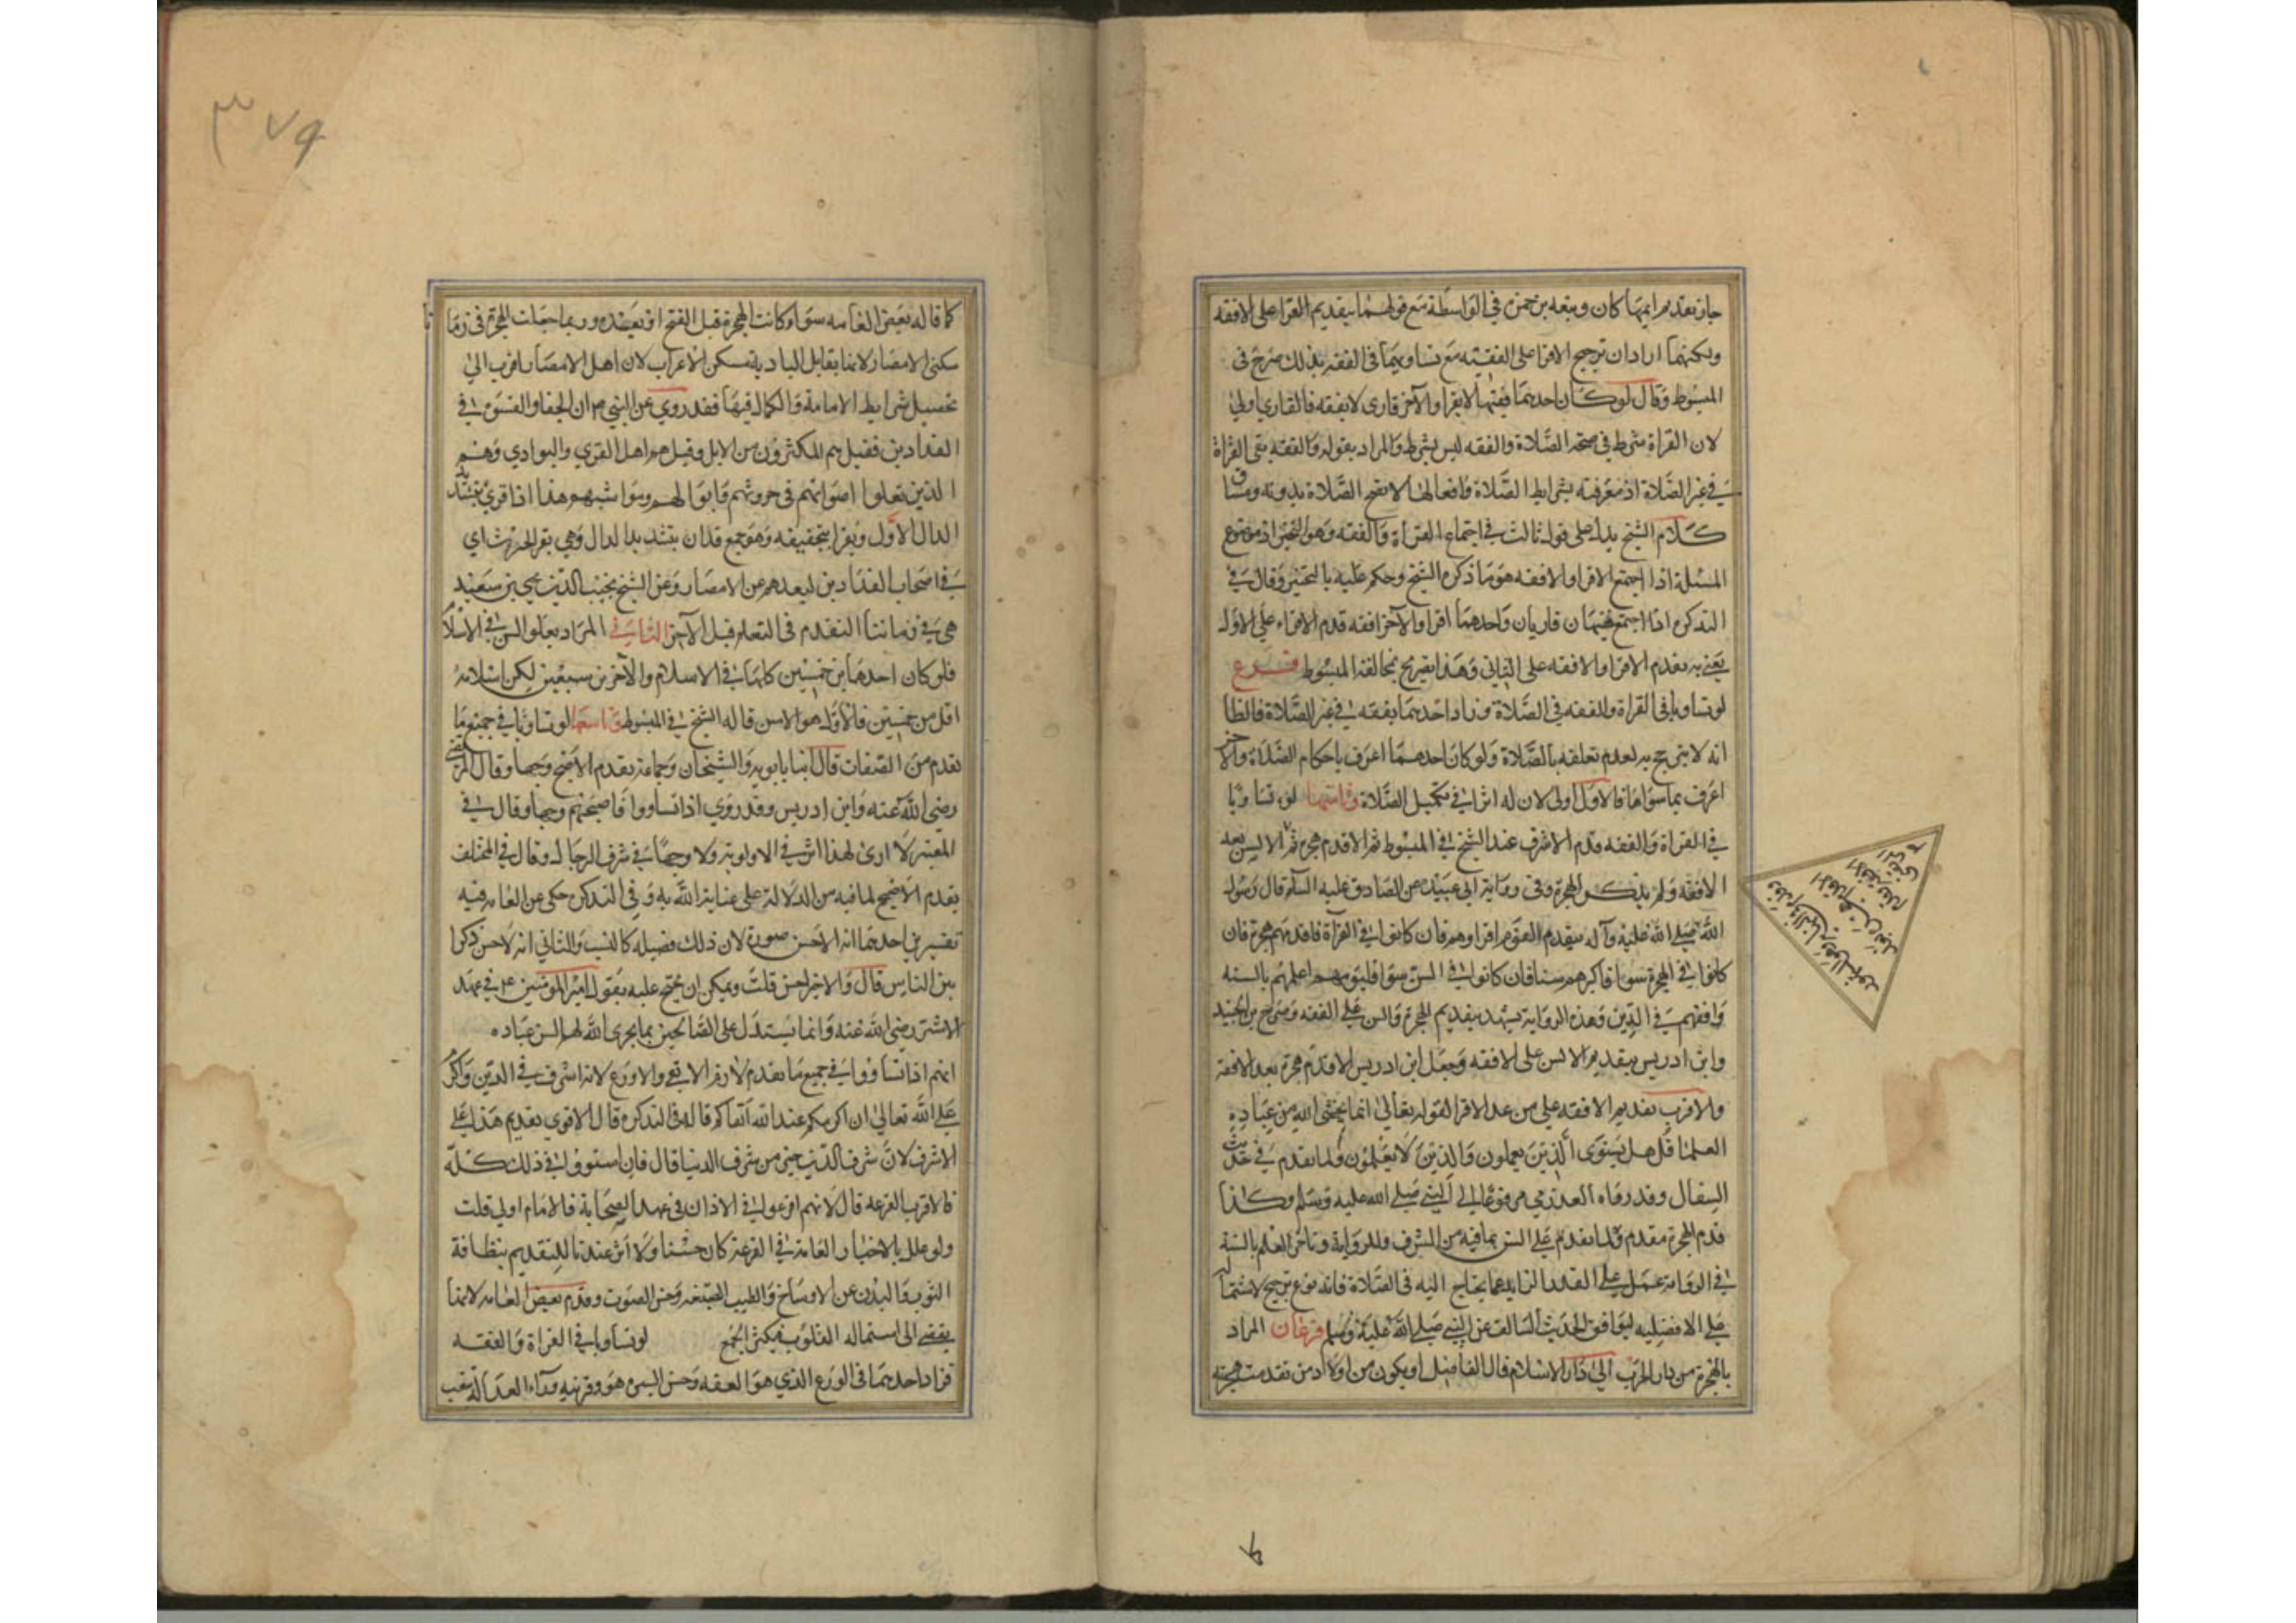 جاز تقديم ايهما كان وتبعه بن حمزه في الواسطة مع قولهما بتقديم القرا على الافقه
ولكنهما ارادا ترجيح الاقرا على الفقيه مع تساويهما في الفقه بذلك صرح في
المبسوط وقال لو كان احدهما فقيها لا يقرا والآخر قارى لا يفقه فالقاري اولى
لان القراة شرط في صحة الصلاة والفقه ليس بشرط والمراد بقوله والفقه بقى القراة
في غير الصلاة اذ معرفته بشرايط الصلاة وافعالها لا تصح الصلاة بدونه ومساق
كلام الشيخ يدل على قول ثالث في اجتماع القراة والفقه وهو التخير اذ موضوع
المسئلة اذا اجتمع الاقرا والافقه هو ما ذكره الشيخ وحكم عليه بالتخير وقال في
التذكره اذا اجتمع فقيهان قاريان واحدهما اقرا والآخر افقه قدم الاقراء على الاول
يعني به تقدم الاقرا والافقه على الثاني وهذا تصريح بمخالفة المبسوط فرع
لو تساويا في القراة والفقه في الصلاة وزاد احدهما بفقه في غير الصلاة فالظا
انه لا يترجح به لعدم تعلقه بالصلاة ولو كان احدهما اعرف باحكام الصلاة والآخر
اعرف بما سواها فالاول اولى لان له اثرا في تكميل الصلاة وثامنها لو تساويا
في القراة والفقه قدم الاشرف عند الشيخ في المبسوط ثم الاقدم هجرة ثم الاسن بعد
الافقه ولم يذكر الهجرة وفي رواية ابي عبيدة عن الصادق عليه السلم قال رسول
الله صلى الله عليه وآله يتقدم القوم اقراوهم فان كانوا في القراة فاقدمهم هجرة فان
كانوا في الهجرة سوا فاكبرهم سنا فان كانوا في السن سوا فليؤمهم اعلمهم بالسنه
وافقههم في الدين وهذه الرواية يشهد بتقديم الهجرة والسن على الفقه وصرح بن الجنيد
وابن ادريس بتقديم الاسن على الافقه وجعل ابن ادريس الاقدم هجرة بعد الافقه
والاقرب تقديم الافقه على من عدا الاقرا لقوله تعالى انما يخشى الله من عباده
العلما قل هل يستوى الذين يعلمون والذين لا يعلمون ولما تقدم في حديث
السفال وقد رواه العدة مرفوعا الى النبي صلى الله عليه وسلم وكذا
قدم الهجرة مقدم ولما تقدم على السن بما فيه من الشرف وللرواية وتاخر العلم بالسنة
في الرواية عمل على القدر الزايد عما يحتاج اليه في الصلاة فانه نوع ترجيح لاشتماله
على الافضليه ليوافق الحديث السالف عن النبي صلى الله عليه وسلم فرعان المراد
بالهجرة من دار الحرب الى دار الاسلام قال الفاضل او يكون من اولاد من تقدمت هجرته
كما قاله بعض العامه سوا كانت الهجرة قبل الفتح او بعده وربما جعلت الهجرة في زماننا
سكنى الامصار لانها تقابل البادية مسكن الاعراب لان اهل الامصار اقرب الى
تحصيل شرايط الامامة والكمال فيها فقد روي عن النبي ص ان الجفا والقسوة في
الفدادين فقيل هم المكثرون من الابل وقيل هم اهل القرى والبوادي وهم
الذين تعلوا اصواتهم في حروثهم واموالهم ومواشيهم هذا اذا قرئ بتشديد
الدال الاول ويقرا بتخفيفه وهو جمع فدان بتشديد الدال وهي بقر الحرث اي
في اصحاب الفدادين لبعدهم عن الامصار وعن الشيخ نجيب الدين يحيى بن سعيد
هى في زماننا التقدم في التعلم قبل الآخر الثاني المراد بعلو السن في الاسلام
فلو كان احدهما بن خمسين كلها في الاسلام والآخر بن سبعين لكن اسلامه
اقل من خمسين فالاول هو الاسن قاله الشيخ في المبسوط وتاسعها لو تساويا في جميع ما
تقدم من الصفات قال ابنا بابويه والشيخان وجماعة يقدم الاصبح وجها وقال المرتضى
رضي الله عنه وابن ادريس وقد روي اذا تساووا فاصبحهم وجها وقال في
المعتبر لا ارى لهذا اثرا في الاولوية ولا وجها في شرف الرجال وقال في المختلف
يقدم الاصبح لما فيه من الدلالة على عناية الله به وفي التذكره حكى عن العامه فيه
تفسيرين احدهما انه الاحسن صورة لان ذلك فضيله كالنسب والثاني انه الاحسن ذكرا
بين الناس قال والاخير احسن قلت ويمكن ان يحتج عليه بقول امير المؤمنين ع في عهد
الاشتر رضي الله عنه وانما يستدل على الصالحين بما يجرى الله لهم السن عباده
انهم اذا تساووا في جميع ما تقدم لارم الاتقى والاورع لانه اشرف في الدين واكرم
على الله تعالى ان اكرمكم عند الله اتقاكم قاله في التذكره قال الاقوى تقديم هذا على
الاشرف لان شرف الدين خير من شرف الدنيا قال فان استووا في ذلك كله
فالاقرب القرعه قال لانهم اقرعوا في الاذان في عهد الصحابة فالامام اولى قلت
ولو علل بالاخبار العامة في القرعة كان حسنا ولا اثر عندنا للتقديم بنظافة
الثوب والبدن عن الاوساخ والطيب الصنعه وحسن الصوت وقدم بعض العامه لانها
يفضى الى استماله القلوب فيكثر الجمع لو تساويا في القراة والفقه
فزاد احدهما في الورع الذي هو العفه وحسن السيره هو وقرينه وراء العدالة يتبعه
٣٧٩